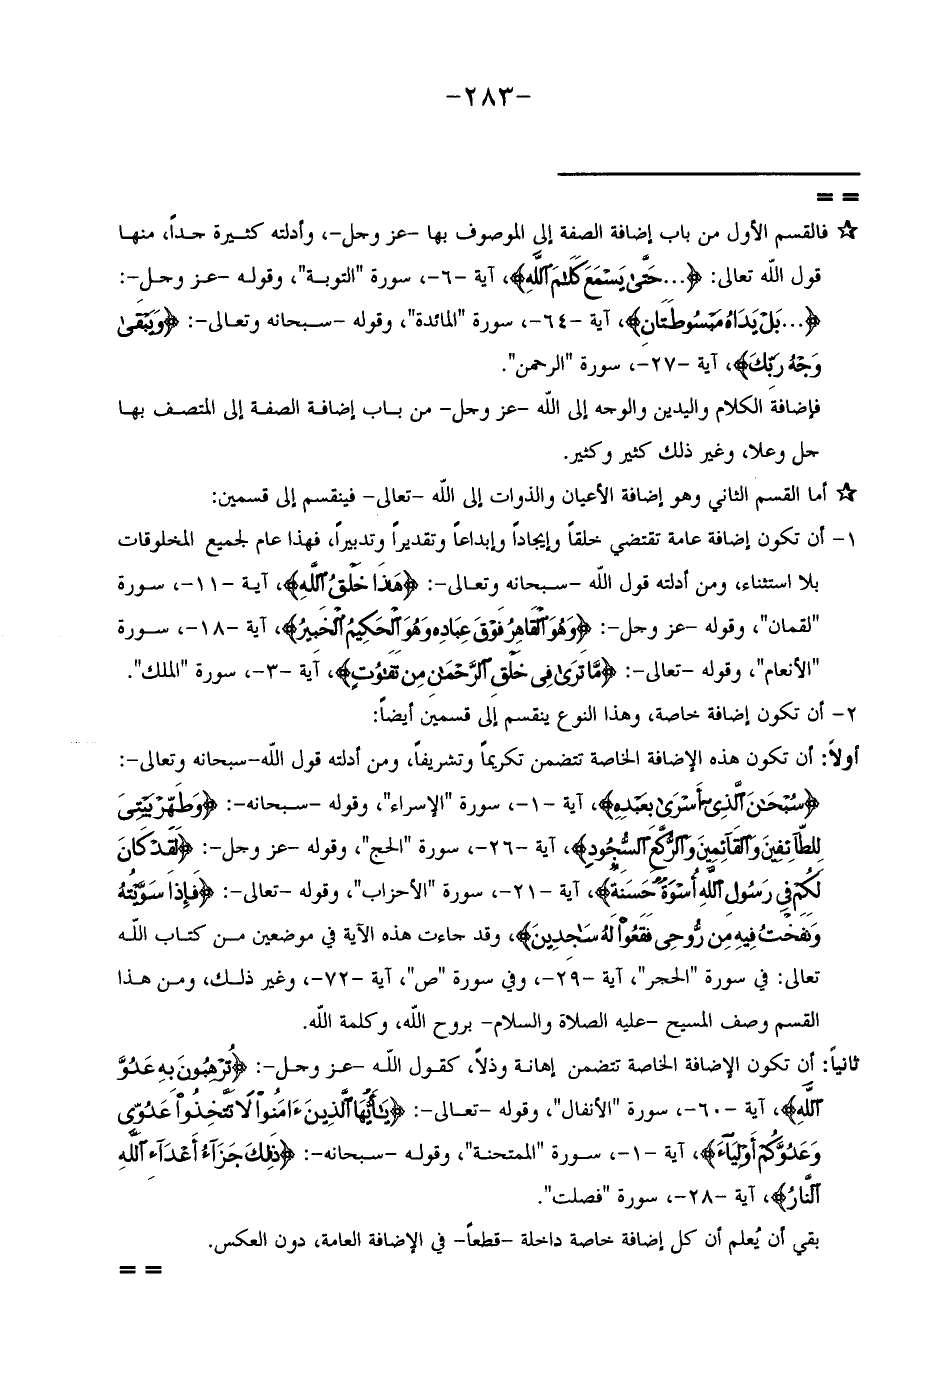 -٢٨٣-
= =
☆ فالقسم الأول من باب إضافة الصفة إلى الموصوف بها -عز وجل-، وأدلته كثيرة جداً، منها
قول الله تعالى: ﴿...حَتَّىٰ يَسْمَعَ كَلَامَ ٱللَّهِ﴾، آية -٦-، سورة "التوبة"، وقوله -عز وجل-:
﴿...بَلْ يَدَاهُ مَبْسُوطَتَانِ﴾، آية -٦٤-، سورة "المائدة"، وقوله -سبحانه وتعالى-: ﴿وَيَبْقَىٰ
وَجْهُ رَبِّكَ﴾، آية -٢٧-، سورة "الرحمن".
فإضافة الكلام واليدين والوجه إلى الله -عز وجل- من باب إضافة الصفة إلى المتصف بها
جل وعلا، وغير ذلك كثير وكثير.
☆ أما القسم الثاني وهو إضافة الأعيان والذوات إلى الله -تعالى- فينقسم إلى قسمين:
١- أن تكون إضافة عامة تقتضي خلقاً وإيجاداً وإبداعاً وتقديراً وتدبيراً، فهذا عام لجميع المخلوقات
بلا استثناء، ومن أدلته قول الله -سبحانه وتعالى-: ﴿هَٰذَا خَلْقُ ٱللَّهِ﴾، آية -١١-، سورة
"لقمان"، وقوله -عز وجل-: ﴿وَهُوَ ٱلْقَاهِرُ فَوْقَ عِبَادِهِ وَهُوَ ٱلْحَكِيمُ ٱلْخَبِيرُ﴾، آية -١٨-، سورة
"الأنعام"، وقوله -تعالى-: ﴿مَّا تَرَىٰ فِي خَلْقِ ٱلرَّحْمَٰنِ مِن تَفَٰوُتٍ﴾، آية -٣-، سورة "الملك".
٢- أن تكون إضافة خاصة، وهذا النوع ينقسم إلى قسمين أيضاً:
أولاً: أن تكون هذه الإضافة الخاصة تتضمن تكريماً وتشريفاً، ومن أدلته قول الله-سبحانه وتعالى-:
﴿سُبْحَٰنَ ٱلَّذِيٓ أَسْرَىٰ بِعَبْدِهِ﴾، آية -١-، سورة "الإسراء"، وقوله -سبحانه-: ﴿وَطَهِّرْ بَيْتِيَ
لِلطَّآئِفِينَ وَٱلْقَآئِمِينَ وَٱلرُّكَّعِ ٱلسُّجُودِ﴾، آية -٢٦-، سورة "الحج"، وقوله -عز وجل-: ﴿لَّقَدْ كَانَ
لَكُمْ فِي رَسُولِ ٱللَّهِ أُسْوَةٌ حَسَنَةٌ﴾، آية -٢١-، سورة "الأحزاب"، وقوله -تعالى-: ﴿فَإِذَا سَوَّيْتُهُ
وَنَفَخْتُ فِيهِ مِن رُّوحِي فَقَعُوا۟ لَهُ سَٰجِدِينَ﴾، وقد جاءت هذه الآية في موضعين من كتاب الله
تعالى: في سورة "الحجر"، آية -٢٩-، وفي سورة "ص"، آية -٧٢-، وغير ذلك، ومن هذا
القسم وصف المسيح -عليه الصلاة والسلام- بروح الله، وكلمة الله.
ثانياً: أن تكون الإضافة الخاصة تتضمن إهانة وذلاً، كقول الله -عز وجل-: ﴿تُرْهِبُونَ بِهِ عَدُوَّ
ٱللَّهِ﴾، آية -٦٠-، سورة "الأنفال"، وقوله -تعالى-: ﴿يَٰٓأَيُّهَا ٱلَّذِينَ ءَامَنُوا۟ لَا تَتَّخِذُوا۟ عَدُوِّي
وَعَدُوَّكُمْ أَوْلِيَآءَ﴾، آية -١-، سورة "الممتحنة"، وقوله -سبحانه-: ﴿ذَٰلِكَ جَزَآءُ أَعْدَآءِ ٱللَّهِ
ٱلنَّارُ﴾، آية -٢٨-، سورة "فصلت".
بقي أن يُعلم أن كل إضافة خاصة داخلة -قطعاً- في الإضافة العامة، دون العكس.
= =